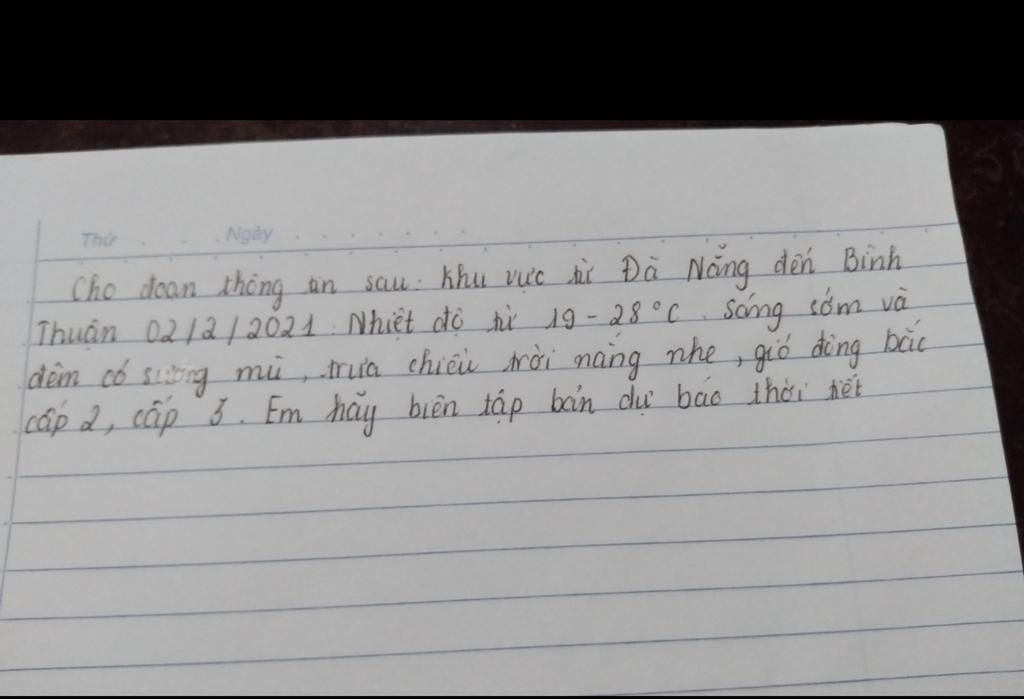 Thứ . . . . Ngày . . . . . . .
Cho đoạn thông tin sau: Khu vực từ Đà Nẵng đến Bình
Thuận 02/2/2021. Nhiệt độ từ 19-28°C. Sáng sớm và
đêm có sương mù, trưa chiều trời nắng nhẹ, gió đông bắc
cấp 2, cấp 3. Em hãy biên tập bản dự báo thời tiết